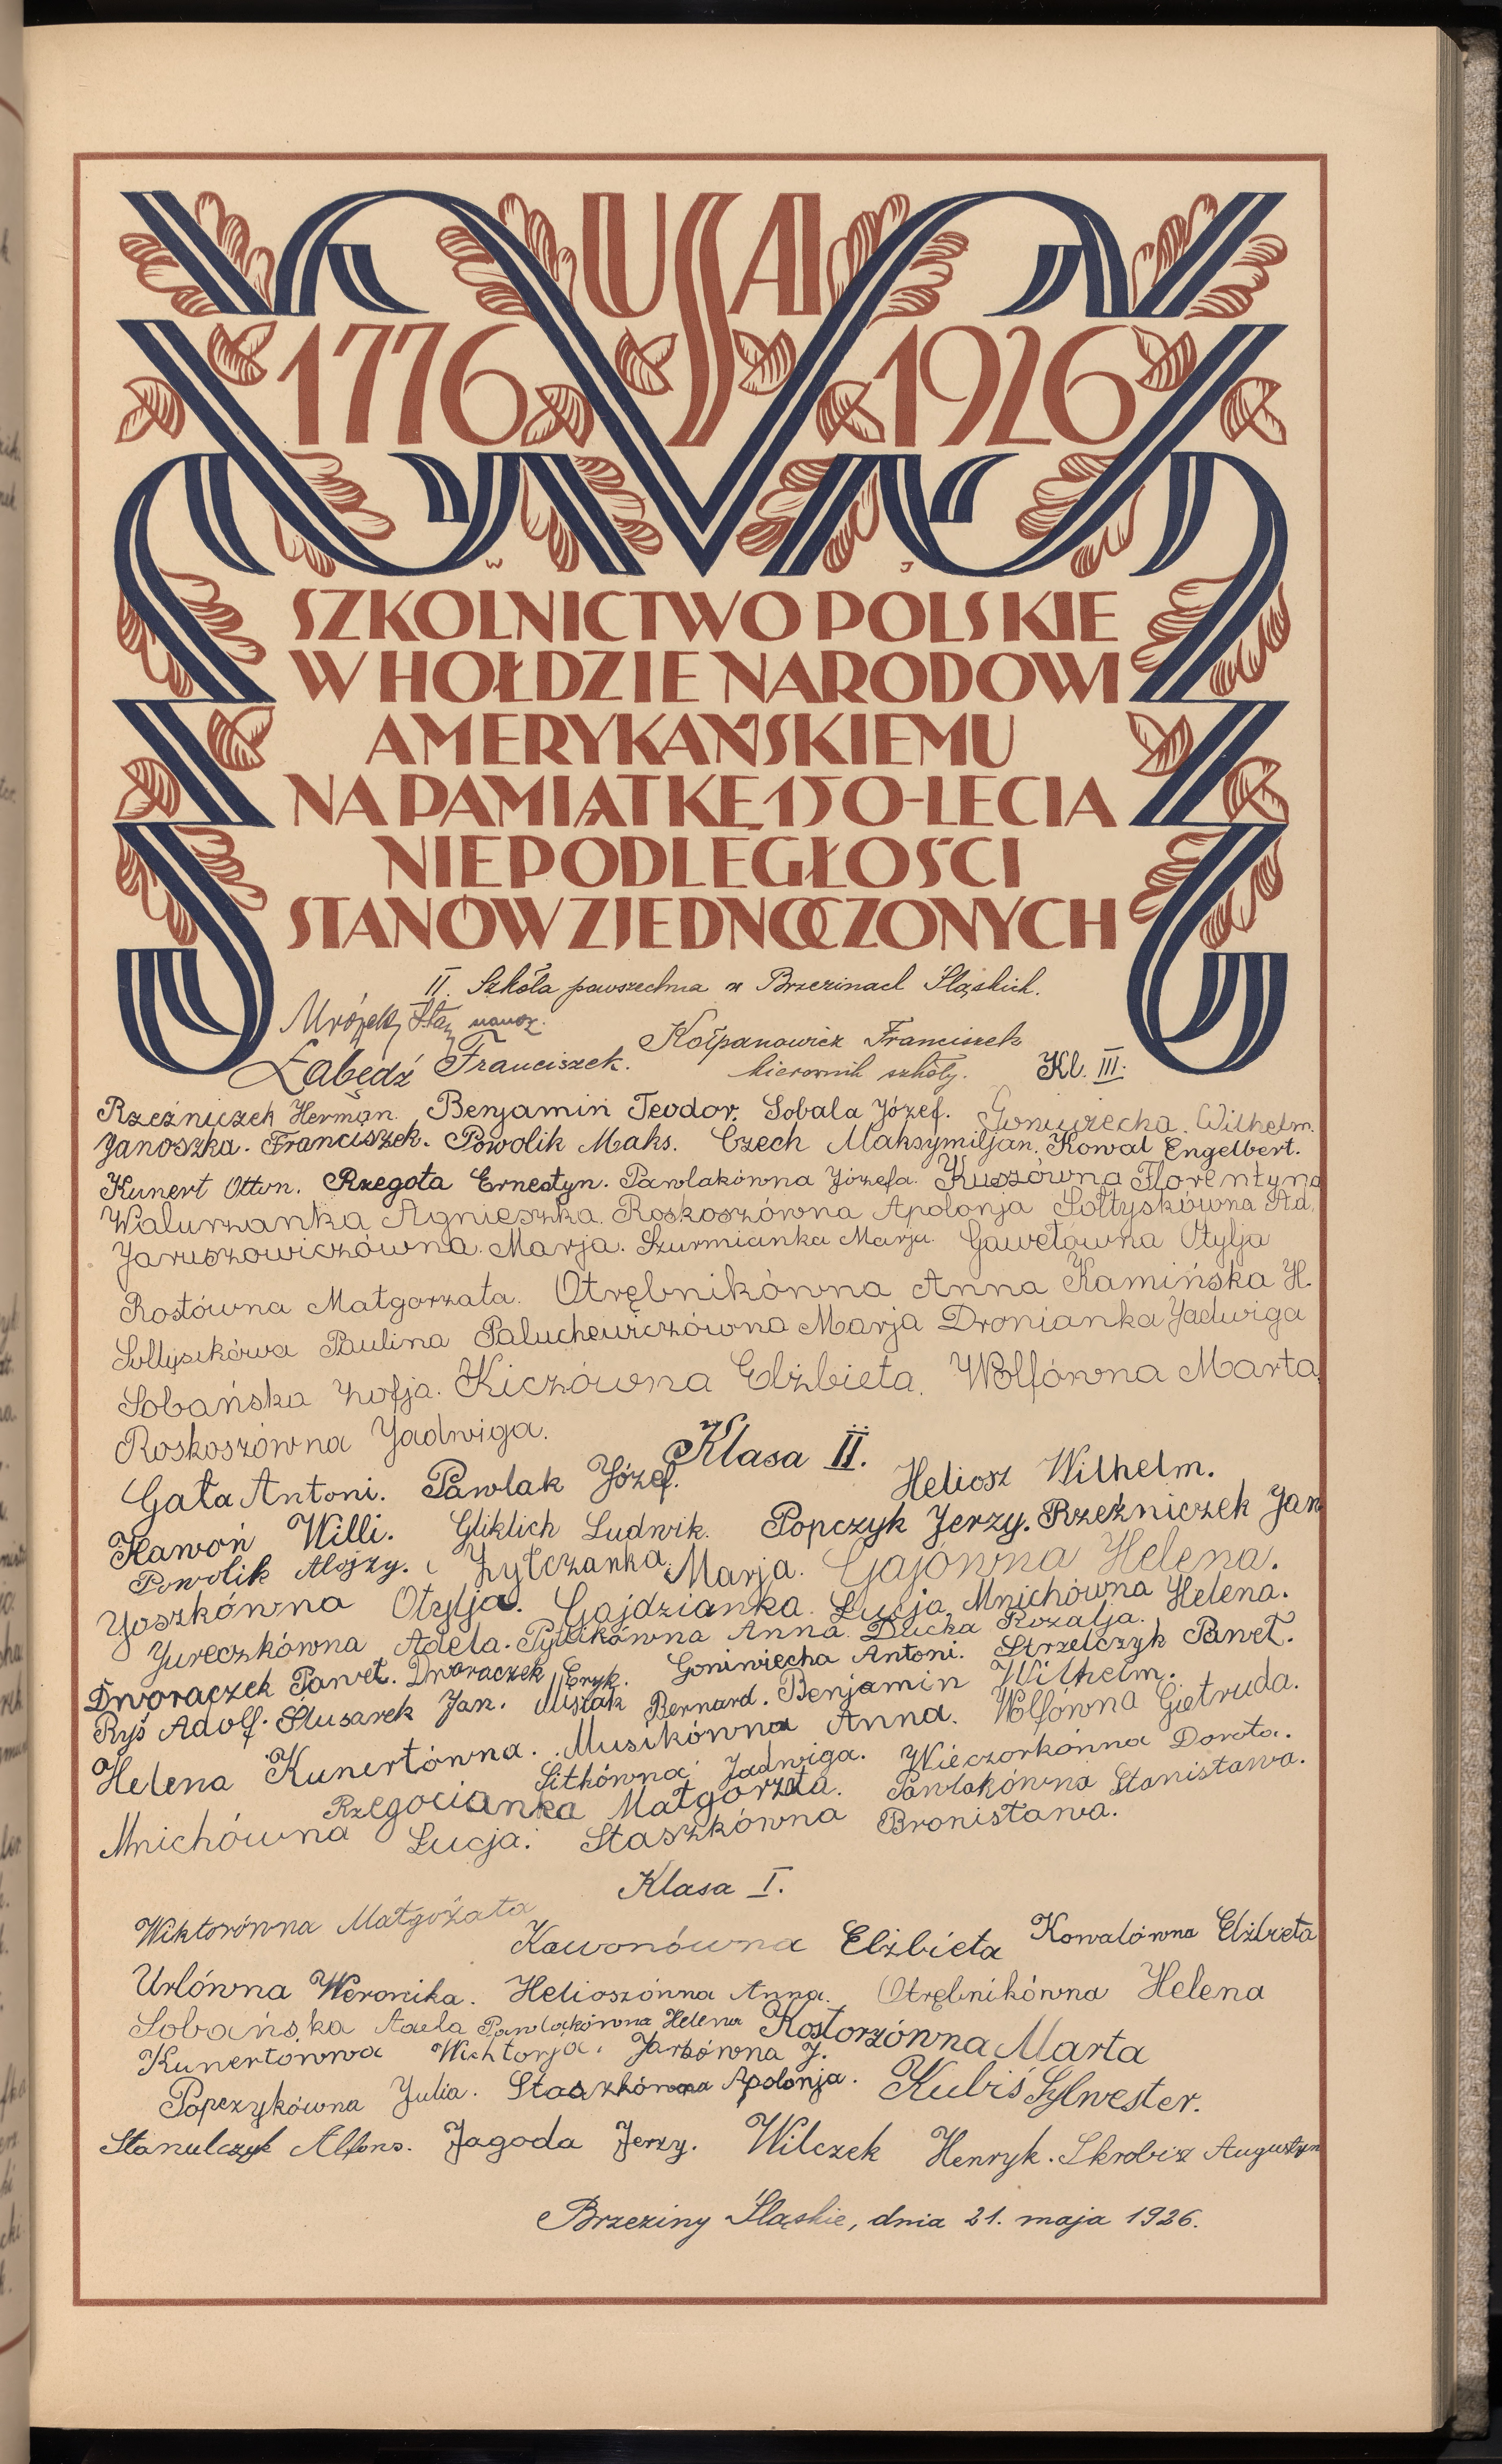 USA
1776 1926
W J
SZKOLNICTWO POLSKIE
W HOŁDZIE NARODOWI
AMERYKAŃSKIEMU
NA PAMIĄTKĘ 150-LECIA
NIEPODLEGŁOŚCI
STANÓW ZJEDNOCZONYCH
II. Szkoła powszechna w Brzezinach Śląskich.
Kołpanowicz Franciszek
Łabędź Franciszek. kierownik szkoły. Kl. III.
Rzeźniczek Herman. Benjamin Teodor. Sobala Józef. Goniwiecha. Wilhelm.
Janoszka. Franciszek. Powolik Maks. Czech Maksymiljan. Kowal Engelbert.
Kunert Otton. Rzegota Ernestyn. Pawlakówna Józefa. Kuszówna Florentyna
Walurzanka Agnieszka. Roskoszówna Apolonja Sołtyskówna Ad.
Jaruszowiczówna. Marja. Szurmianka Marja. Gawełówna Otylja
Rostówna Małgorzata. Otrębnikówna Anna Kamińska H.
Sołtysikówa Paulina Paluchewiczówna Marja Dronianka Jadwiga
Sobańska Zofja. Kiczówna Elżbieta. Wolfówna Marta.
Roskoszówna Jadwiga. Klasa II.
Gała Antoni. Pawlak Józef. Heliosz Wilhelm.
Kawoń Willi. Gliklich Ludwik. Popczyk Jerzy. Rzeźniczek Jan
Powolik Alojzy. Żylczanka. Marja. Gajówna Helena.
Joszkówna Otylja. Gajdzianka. Łucja Mnichówna Helena.
Jureczkówna Adela. Pytlikówna Anna. Ducka Rozalja.
Dworaczek Paweł. Dworaczek Eryk. Goniwiecha Antoni. Strzelczyk Paweł.
Ryś Adolf. Ślusarek Jan. Musiak Bernard. Benjamin Wilhelm.
Helena Kunertówna. Musikówna Anna. Wolfówna Gietruda.
Sitkówna Jadwiga. Wieczorkónna Dorota.
Rzegocianka Małgorzata. Pawlakówna Stanisława.
Mnichówna Łucja. Staszkówna Bronisława.
Klasa I.
Wiktorówna Małgożata Kawonówna Elżbieta Kowalówna Elżbieta
Urlówna Weronika. Helioszónna Anna. Otrębnikówna Helena
Sobańska Adela Pawlakówna Helena Kostorzówna Marta
Kunertówna Wichtorja. Jarbówna J.
Popczykówna Julia. Staszkówna Apolonja. Kubiś Sylwester.
Stanulczyk Alfons. Jagoda Jerzy. Wilczek Henryk. Skrobisz Augustyn
Brzeziny Śląskie, dnia 21. maja 1926.